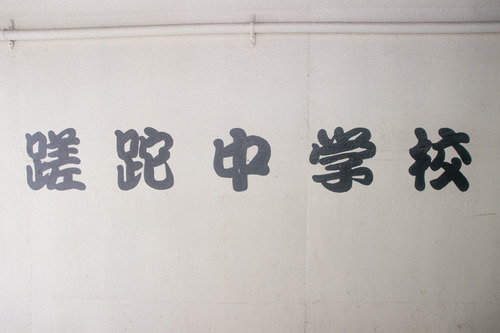 蹉跎中学校